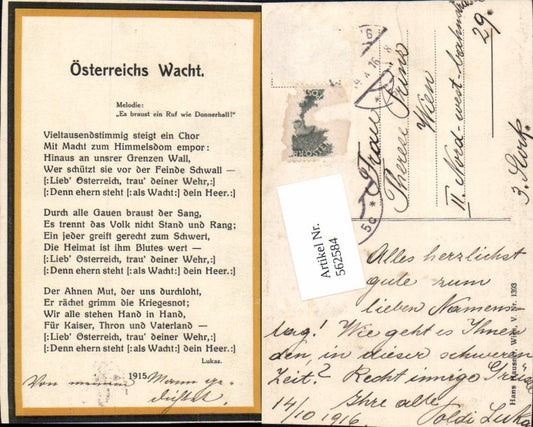 Österreichs Wacht.
Melodie:
„Es braust ein Ruf wie Donnerhall!"
Vieltausendstimmig steigt ein Chor
Mit Macht zum Himmelsdom empor:
Hinaus an unsrer Grenzen Wall,
Wer schützt sie vor der Feinde Schwall —
[:Lieb' Österreich, trau' deiner Wehr,:]
[:Denn ehern steht [:als Wacht:] dein Heer.:]
Durch alle Gauen braust der Sang,
Es trennt das Volk nicht Stand und Rang;
Ein jeder greift gerecht zum Schwert,
Die Heimat ist ihm Blutes wert —
[:Lieb' Österreich, trau' deiner Wehr,:]
[:Denn ehern steht [:als Wacht:] dein Heer.:]
Der Ahnen Mut, der uns durchloht,
Er rächet grimm die Kriegesnot;
Wir alle stehen Hand in Hand,
Für Kaiser, Thron und Vaterland —
[:Lieb' Österreich, trau' deiner Wehr,:]
[:Denn ehern steht [:als Wacht:] dein Heer.:]
Lukas.
1915.
Von meinem Mann ge-
dichtet.
Frau
Therese
Wien
II. Nord-west-bahnstr
29.
3. Stock.
Artikel Nr.
562584
Alles herzlichst
gute zum
lieben Namens-
tag! Wie geht es Ihnen
den, in dieser schweren
Zeit? Recht innige Grüße
Ihre alte
14/10 1916. Poldi Lukas
Wien, V. Nr. 1393